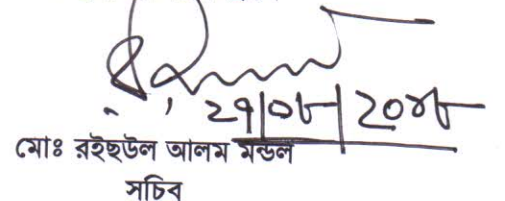 ২৭|০৮|২০১৮
মোঃ রইছউল আলম মন্ডল
সচিব